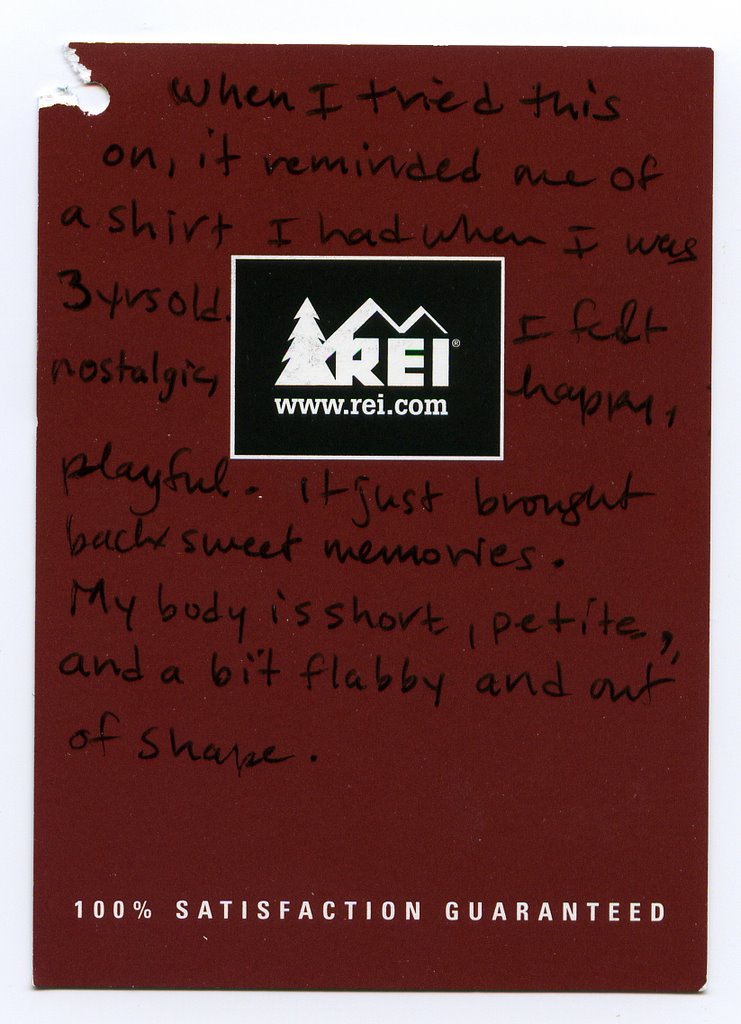 When I tried this
on, it reminded me of
a shirt I had when I was
3 yrs old. I felt
nostalgic, happy,
REI®
www.rei.com
playful. it just brought
back sweet memories.
My body is short, petite,
and a bit flabby and out
of shape.
100% SATISFACTION GUARANTEED